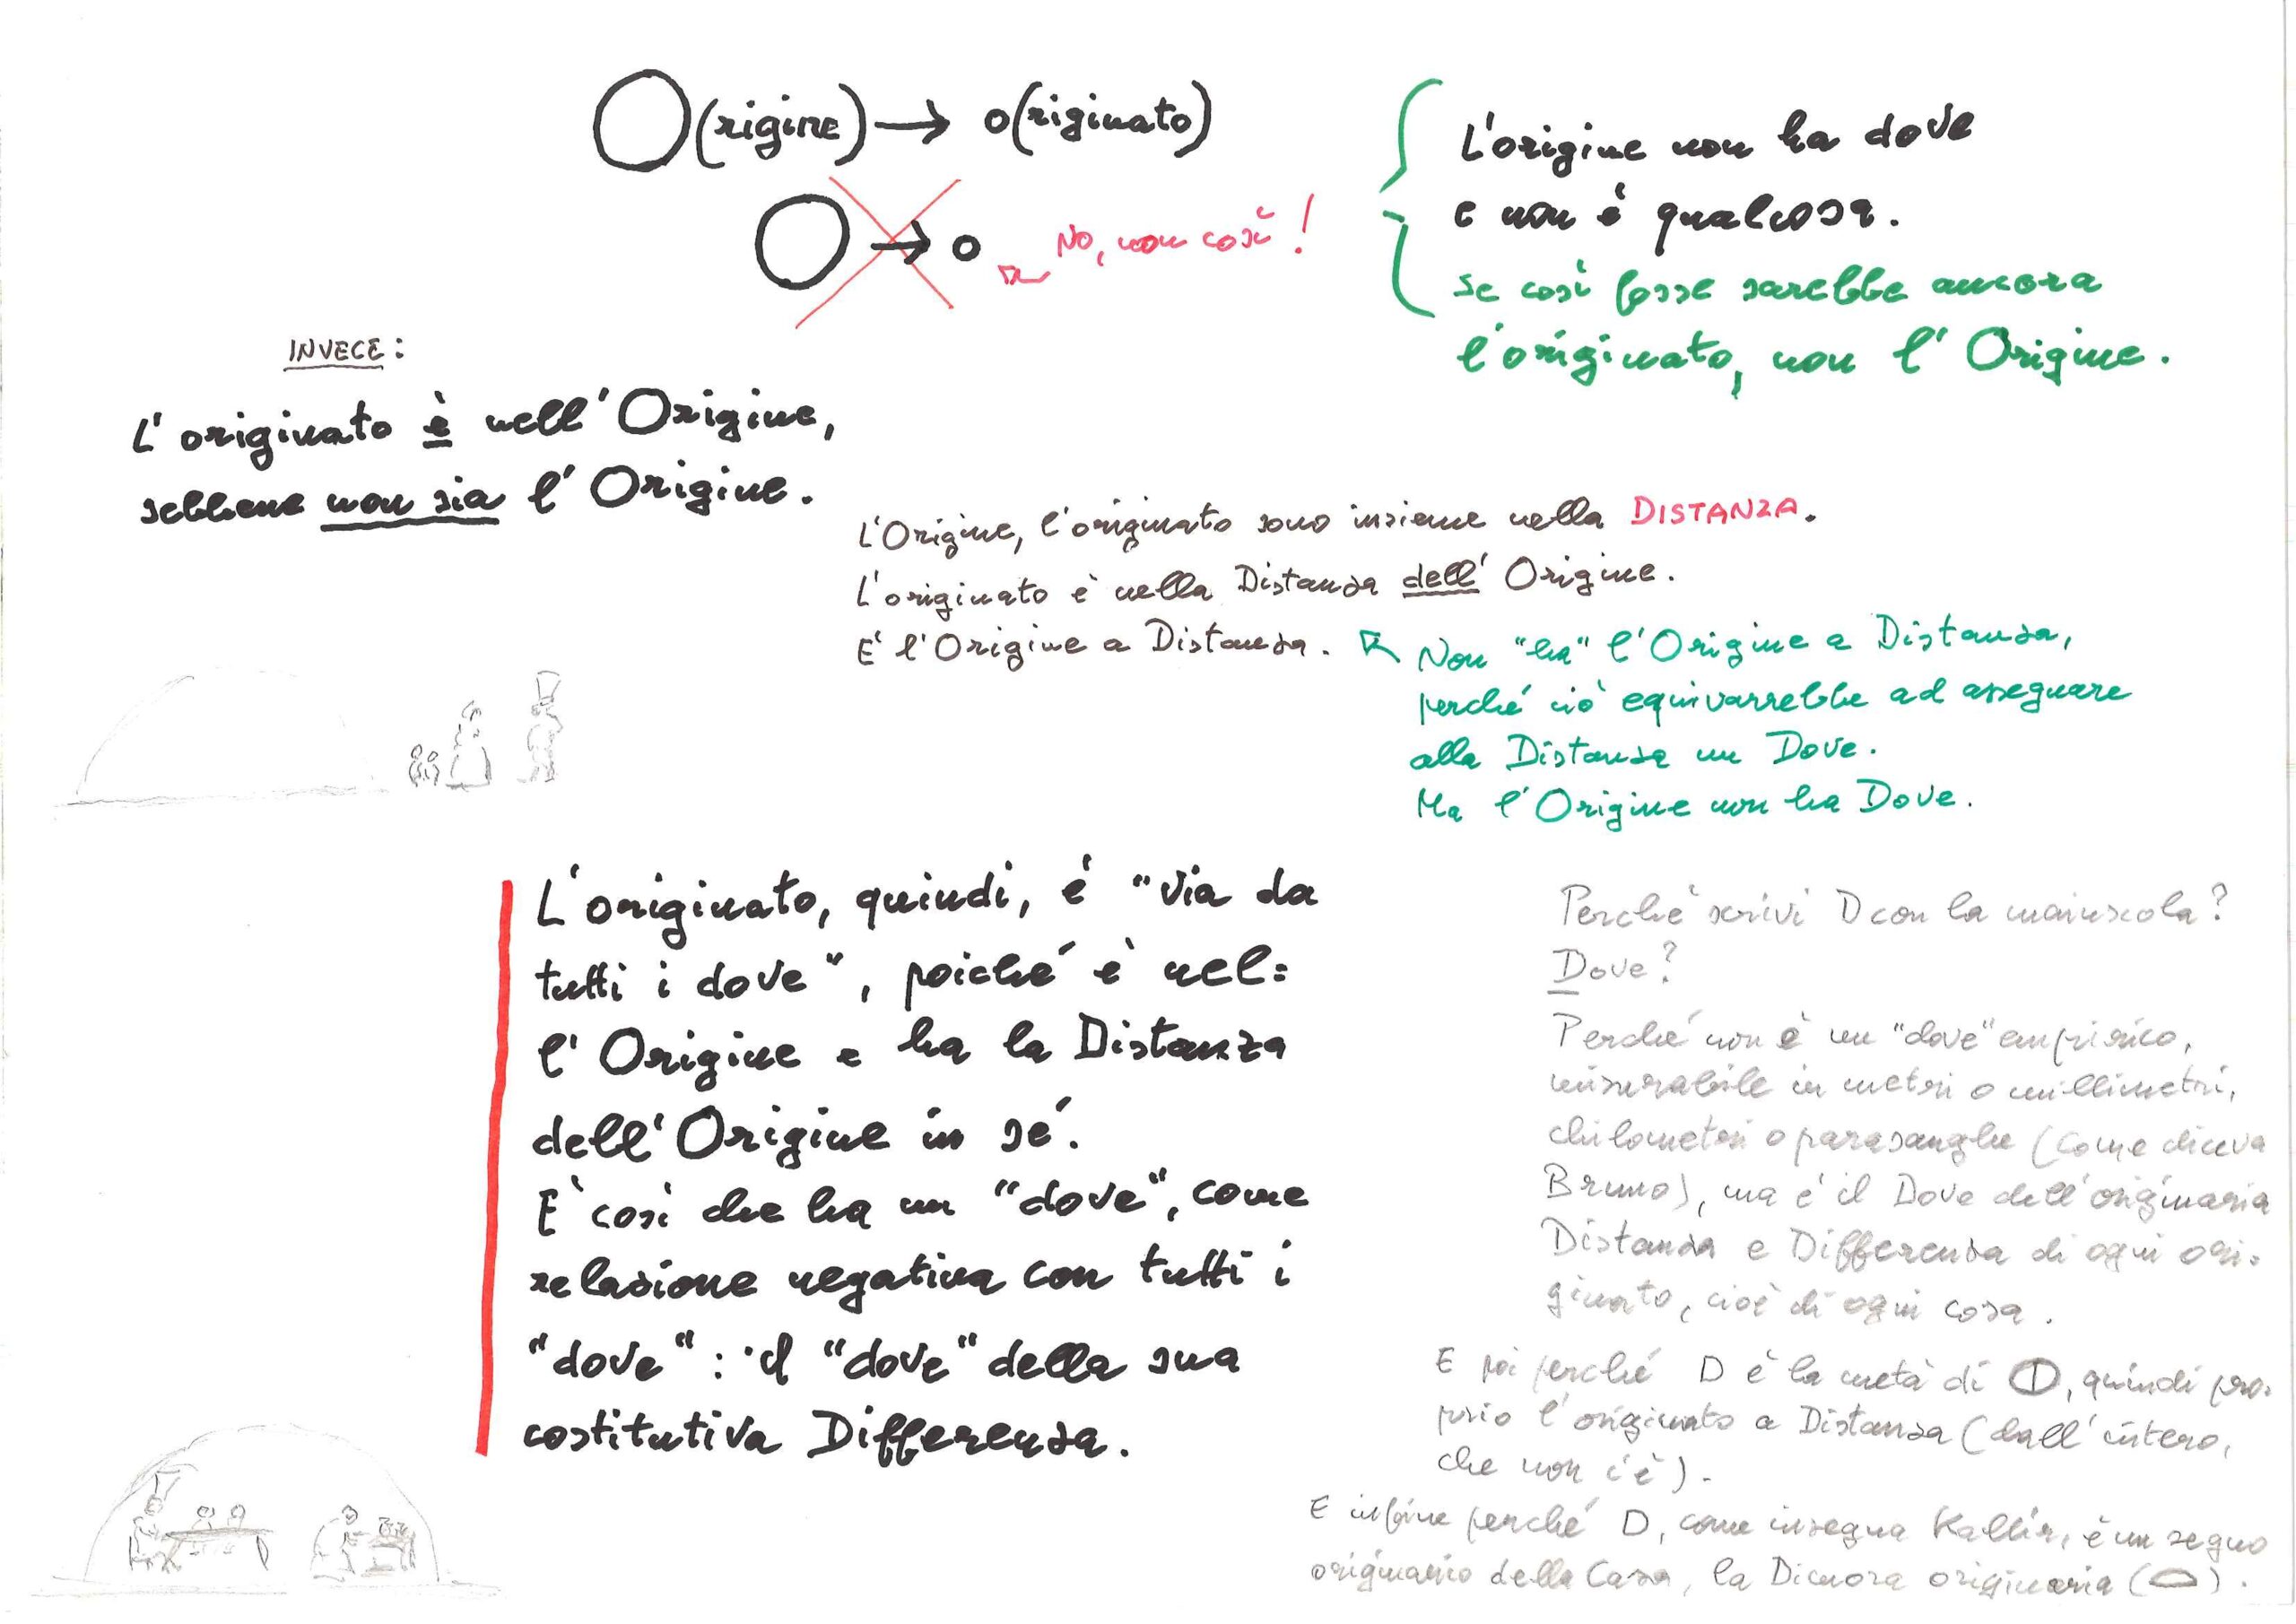 O(rigine) → o(riginato)
O → o
No, non così!
L'origine non ha dove
e non è qualcosa.
se così fosse sarebbe ancora
l'originato, non l'Origine.
INVECE:
L'originato è nell'Origine,
sebbene non sia l'Origine.
L'Origine, l'originato sono insieme nella DISTANZA.
L'originato è nella Distanza dell'Origine.
E' l'Origine a Distanza.
Non "ha" l'Origine a Distanza,
perché ciò equivarrebbe ad assegnare
alla Distanza un Dove.
Ma l'Origine non ha Dove.
L'originato, quindi, è "via da
tutti i dove", poiché è nel=
l'Origine e ha la Distanza
dell'Origine in sé.
E' così che ha un "dove", come
relazione negativa con tutti i
"dove": il "dove" della sua
costitutiva Differenza.
Perché scrivi D con la maiuscola?
Dove?
Perché non è un "dove" empirico,
misurabile in metri o millimetri,
chilometri o parasanghe (come diceva
Bruno), ma è il Dove dell'originaria
Distanza e Differenza di ogni ori=
ginato, cioè di ogni cosa.
E poi perché D è la metà di O, quindi pro=
prio l'originato a Distanza (dall'intero,
che non c'è).
E infine perché D, come insegna Kallir, è un segno
originario della Casa, la Dimora originaria (⌓).